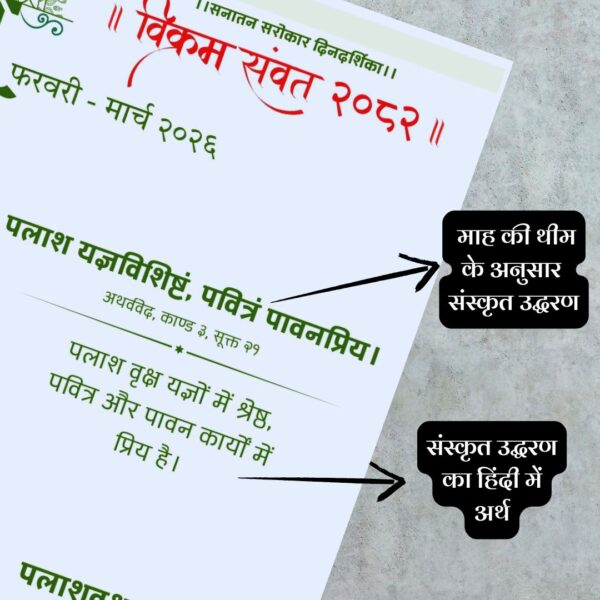 ।।सनातन सरोकार दिनदर्शिका।।
॥ विक्रम संवत २०८२ ॥
फरवरी - मार्च २०२६
पलाश यज्ञविशिष्टं, पवित्रं पावनप्रिय।
अथर्ववेद, काण्ड ३, सूक्त २१
पलाश वृक्ष यज्ञों में श्रेष्ठ,
पवित्र और पावन कार्यों में
प्रिय है।
माह की थीम
के अनुसार
संस्कृत उद्धरण
संस्कृत उद्धरण
का हिंदी में
अर्थ